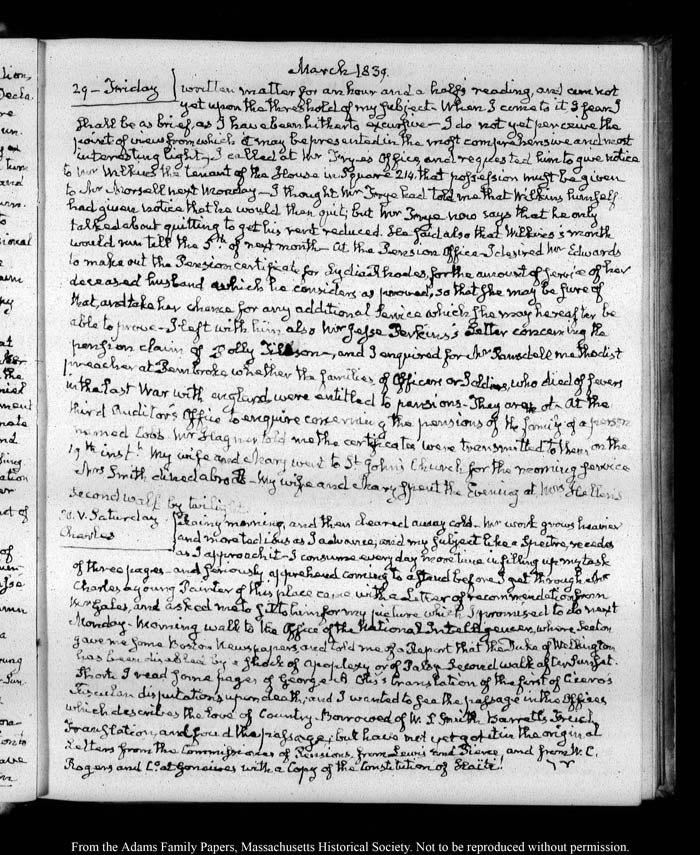 March 1839.
29 - Friday written matter for an hour and a half's reading, and am not
yet upon the threshold of my subject. When I come to it I fear I
shall be as brief, as I have been hitherto excursive - I do not yet perceive the
point of view from which it may be presented in the most comprehensive and most
interesting light - I called at Mr Frye's Office, and requested him to give notice
to Mr Wilkins the tenant of the House in Square 214 that possession must be given
to Mr Morsell next Monday - I thought Mr Frye had told me that Wilkins himself
had given notice that he would then quit; but Mr Frye now says that he only
talked about quitting to get his rent reduced. He said also that Wilkins's month
would run till the 5th of next month - At the Pension Office I desired Mr Edwards
to make out the Pension certificate for Lydia Rhodes, for the amount of service of her
deceased husband which he considers as proved, so that she may be sure of
that, and take her chance for any additional service which she may hereafter be
able to prove - I left with him, also Mr Jesse Perkins's Letter concerning the
pension claim of Polly - and I enquired for Mr Ramsdell methodist
preacher at Pembroke whether the families of Officers or Soldiers, who died of fevers
in the last War with England were entitled to pensions - They are not - At the
third Auditor's Office to enquire concerning the pensions of the family of a person
named Cobb. Mr Hagner told me the certificates were transmitted to them on the
19th inst. My wife and Mary went to St John's Church for the morning service
Mrs Smith dined abroad - My wife and Mary spent the Evening at Mrs Hellen's
second walk by twilight.
30. V. Saturday Rainy morning, and then cleared away cold. My work grows heavier
Charles and more tedious as I advance, and my subject like a Spectre, recedes
as I approach it - I consume every day more time in filling up my task
of three pages - and seriously apprehend coming to a stand before I get through. Mr
Charles a young Painter of this place came with a Letter of recommendation from
Mr Gales, and asked me to sit to him for my picture which I promised to do next
Monday - Morning walk to the Office of the National Intelligencer, where Seaton
gave me some Boston Newspapers, and told me of a Report that the Duke of Wellington
has been disabled by a shock of apoplexy or of Palsy. Second walk after Sunset.
I read some pages of George A Otis's translation of the first of Cicero's
Tusculan disputations upon death, and I wanted to see the passage in the Offices
which describes the love of Country - Borrowed of W. S. Smith, Barrett's French
Translation, and found the passage; but have not yet got it in the original
Letters from the Commissioner of Pensions, from Lewis and Pierce, and from W. C.
Rogers and Co. at Gonaives with a Copy of the Constitution of Haiti!
From the Adams Family Papers, Massachusetts Historical Society. Not to be reproduced without permission.